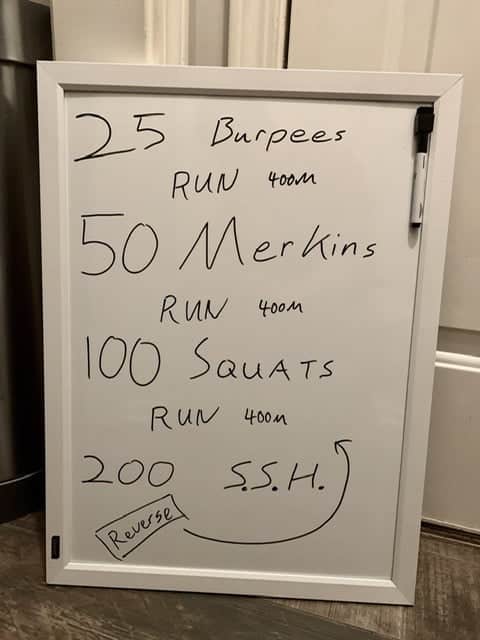 25 Burpees
RUN 400m
50 Merkins
RUN 400m
100 SQUATS
RUN 400m
200 S.S.H.
Reverse